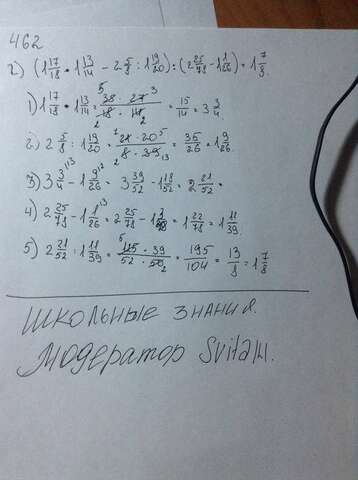 462
2) (1 17/18 · 1 13/14 - 2 5/8 : 1 19/20) : (2 25/78 - 1 1/26) = 1 7/8.
1) 1 17/18 · 1 13/14 = 35 · 27 / 18 · 14 = 15/14 = 3 3/4.
2) 2 5/8 : 1 19/20 = 21 · 20 / 8 · 39 = 35/26 = 1 9/26.
3) 3 3/4 - 1 9/26 = 3 39/52 - 1 18/52 = 2 21/52.
4) 2 25/78 - 1 1/26 = 2 25/78 - 1 3/78 = 1 22/78 = 1 11/39.
5) 2 21/52 : 1 11/39 = 125 · 39 / 52 · 50 = 195/104 = 13/8 = 1 7/8
Школьные знания.
Модератор